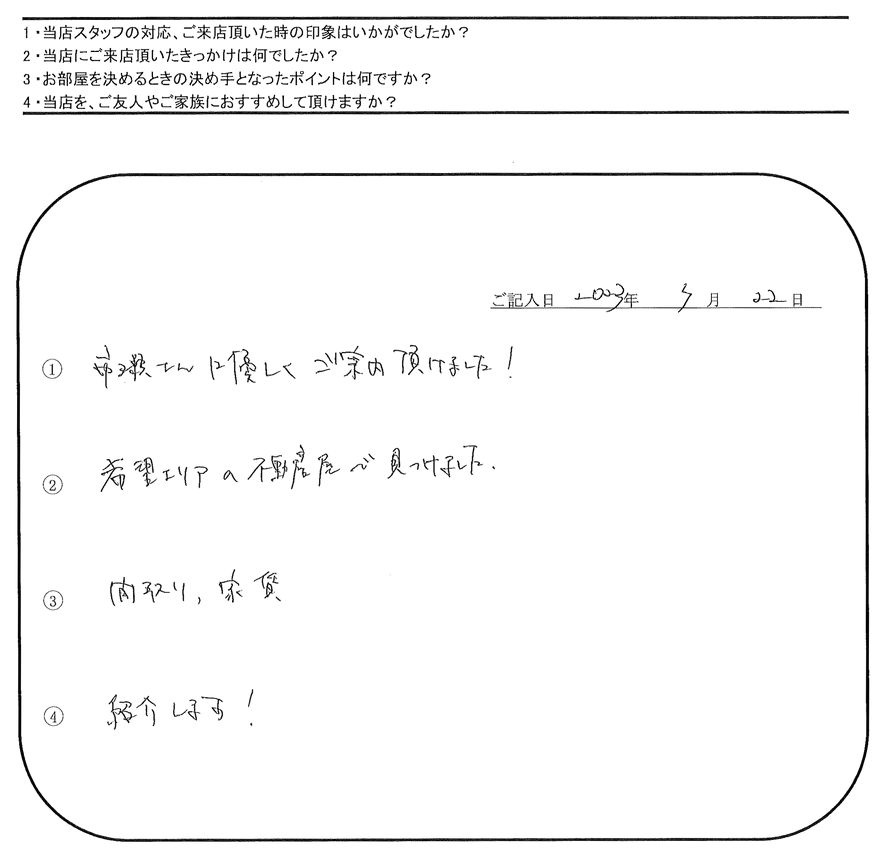 1・当店スタッフの対応、ご来店頂いた時の印象はいかがでしたか？
2・当店にご来店頂いたきっかけは何でしたか？
3・お部屋を決めるときの決め手となったポイントは何ですか？
4・当店を、ご友人やご家族におすすめして頂けますか？
ご記入日 2023年 3月 22日
① さんに優しくご案内頂けました！
② 希望エリアの不動産屋で見つけました.
③ 間取り, 家賃
④ 紹介します！